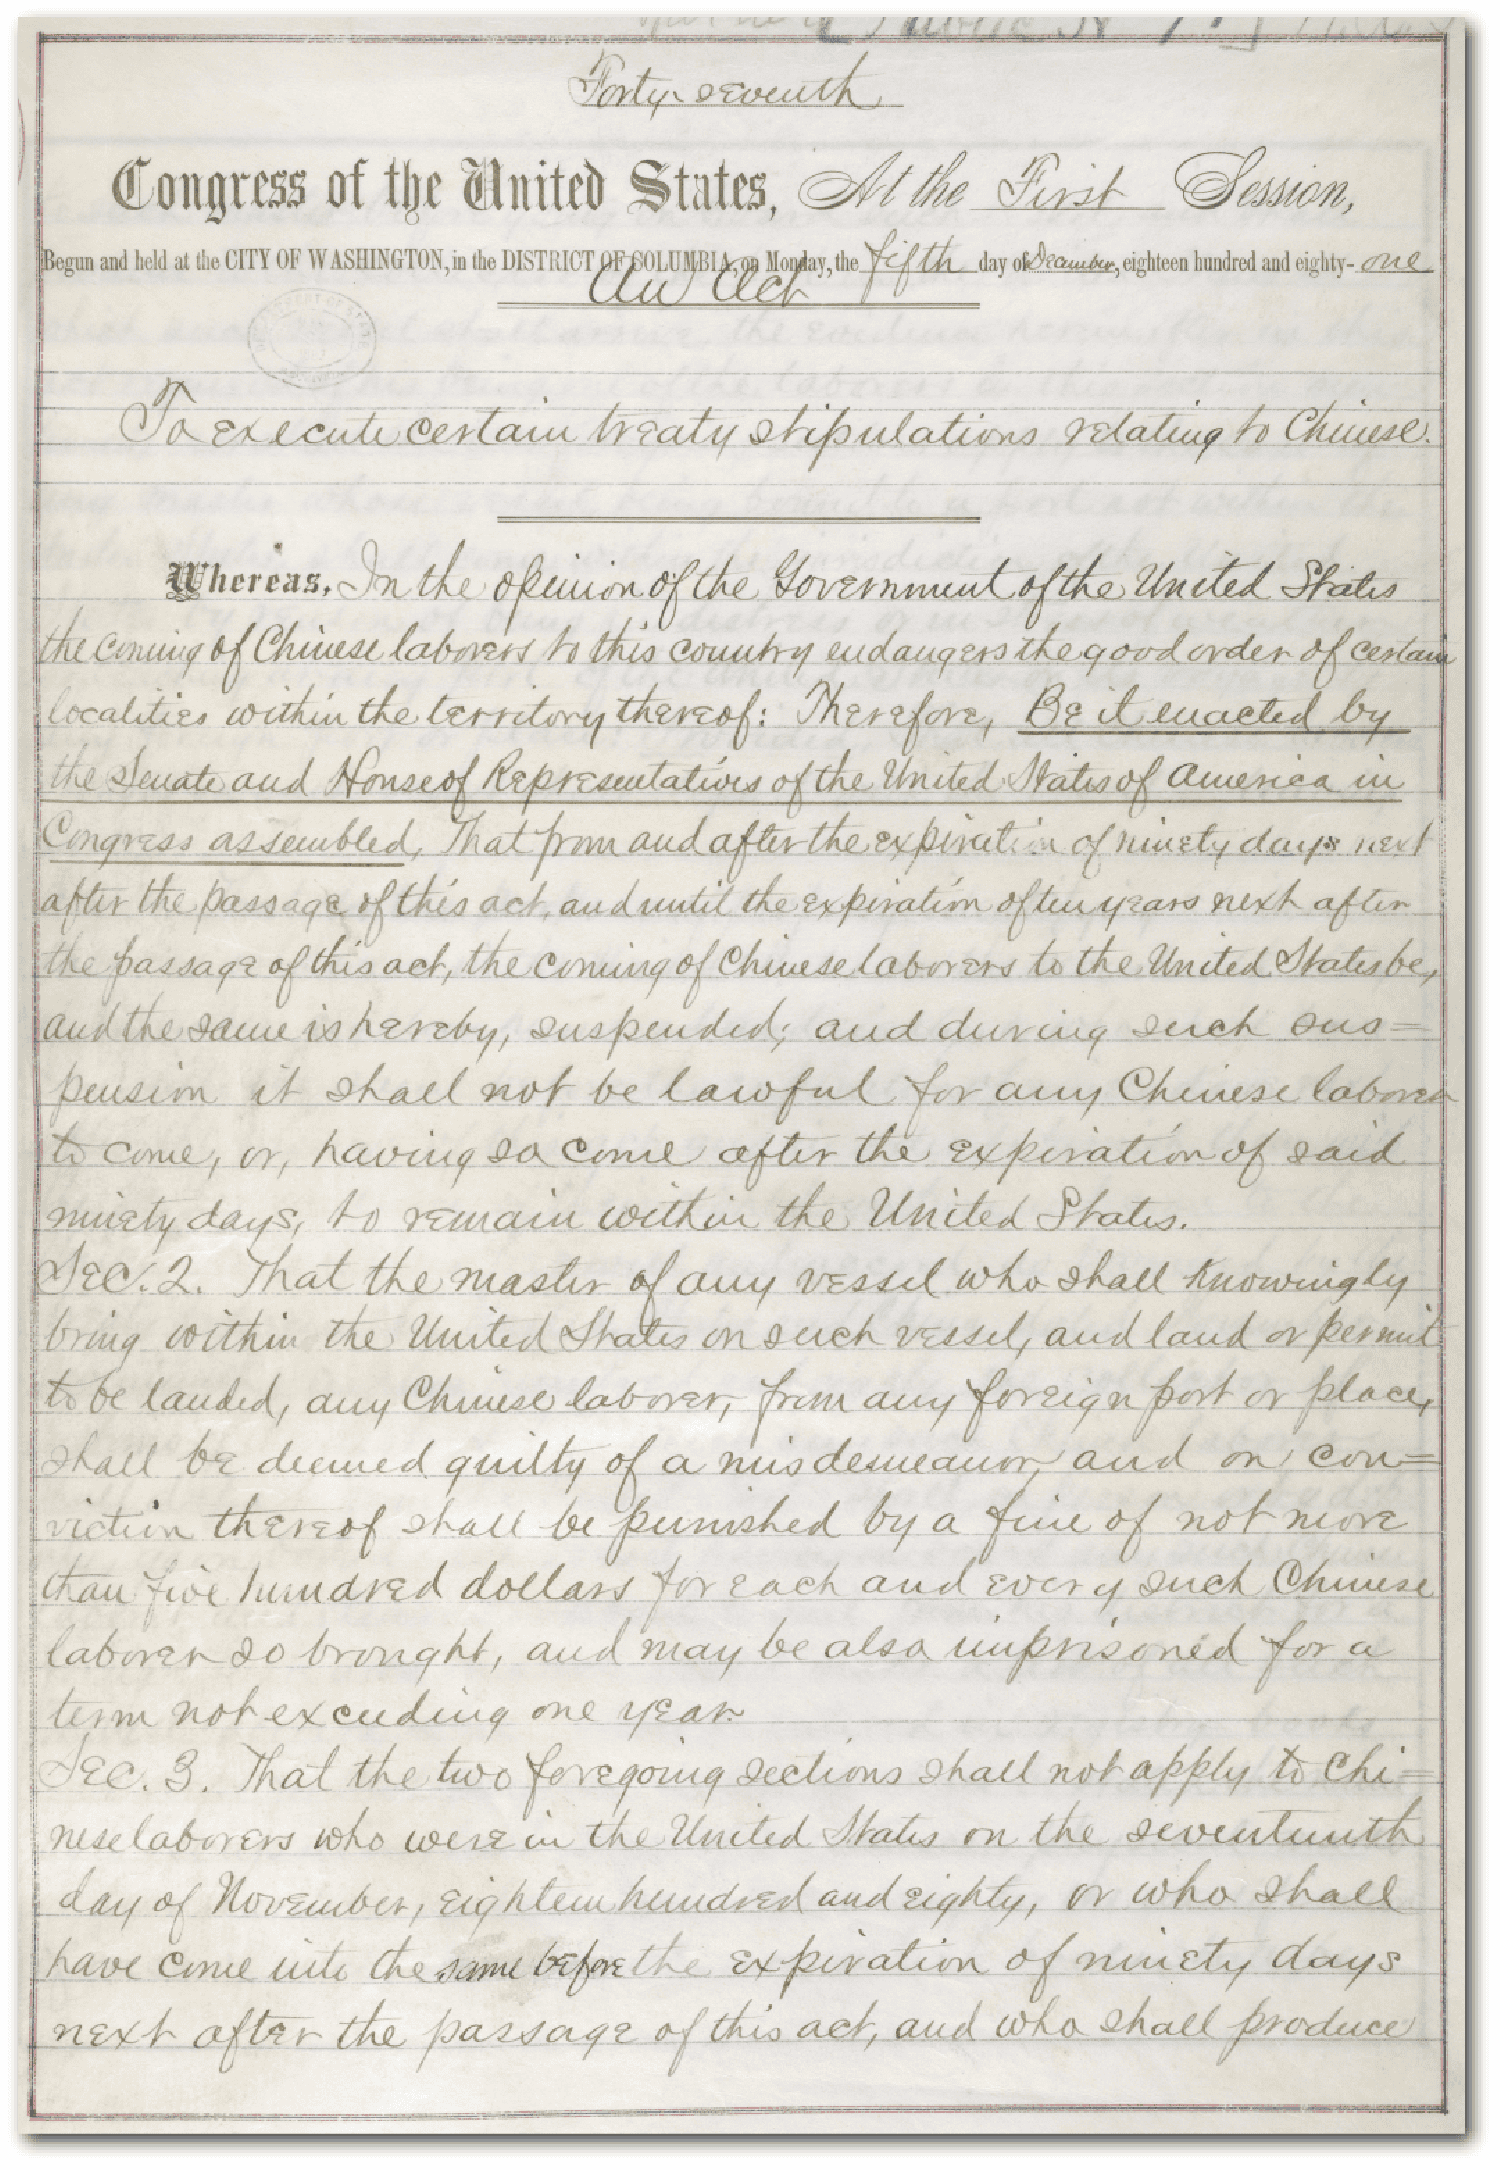 Forty-seventh
Congress of the United States, At the First Session,
Begun and held at the CITY OF WASHINGTON, in the DISTRICT OF COLUMBIA, on Monday, the fifth day of December, eighteen hundred and eighty-one
An Act
To execute certain treaty stipulations relating to Chinese.
Whereas, In the opinion of the Government of the United States
the coming of Chinese laborers to this country endangers the good order of certain
localities within the territory thereof: Therefore, Be it enacted by
the Senate and House of Representatives of the United States of America in
Congress assembled, That from and after the expiration of ninety days next
after the passage of this act, and until the expiration of ten years next after
the passage of this act, the coming of Chinese laborers to the United States be,
and the same is hereby, suspended; and during such sus=
pension it shall not be lawful for any Chinese laborer
to come, or, having so come after the expiration of said
ninety days, to remain within the United States.
SEC. 2. That the master of any vessel who shall knowingly
bring within the United States on such vessel, and land or permit
to be landed, any Chinese laborer, from any foreign port or place,
shall be deemed guilty of a misdemeanor, and on con=
viction thereof shall be punished by a fine of not more
than five hundred dollars for each and every such Chinese
laborer so brought, and may be also imprisoned for a
term not exceeding one year.
SEC. 3. That the two foregoing sections shall not apply to Chi=
nese laborers who were in the United States on the seventeenth
day of November, eighteen hundred and eighty, or who shall
have come into the same before the expiration of ninety days
next after the passage of this act, and who shall produce